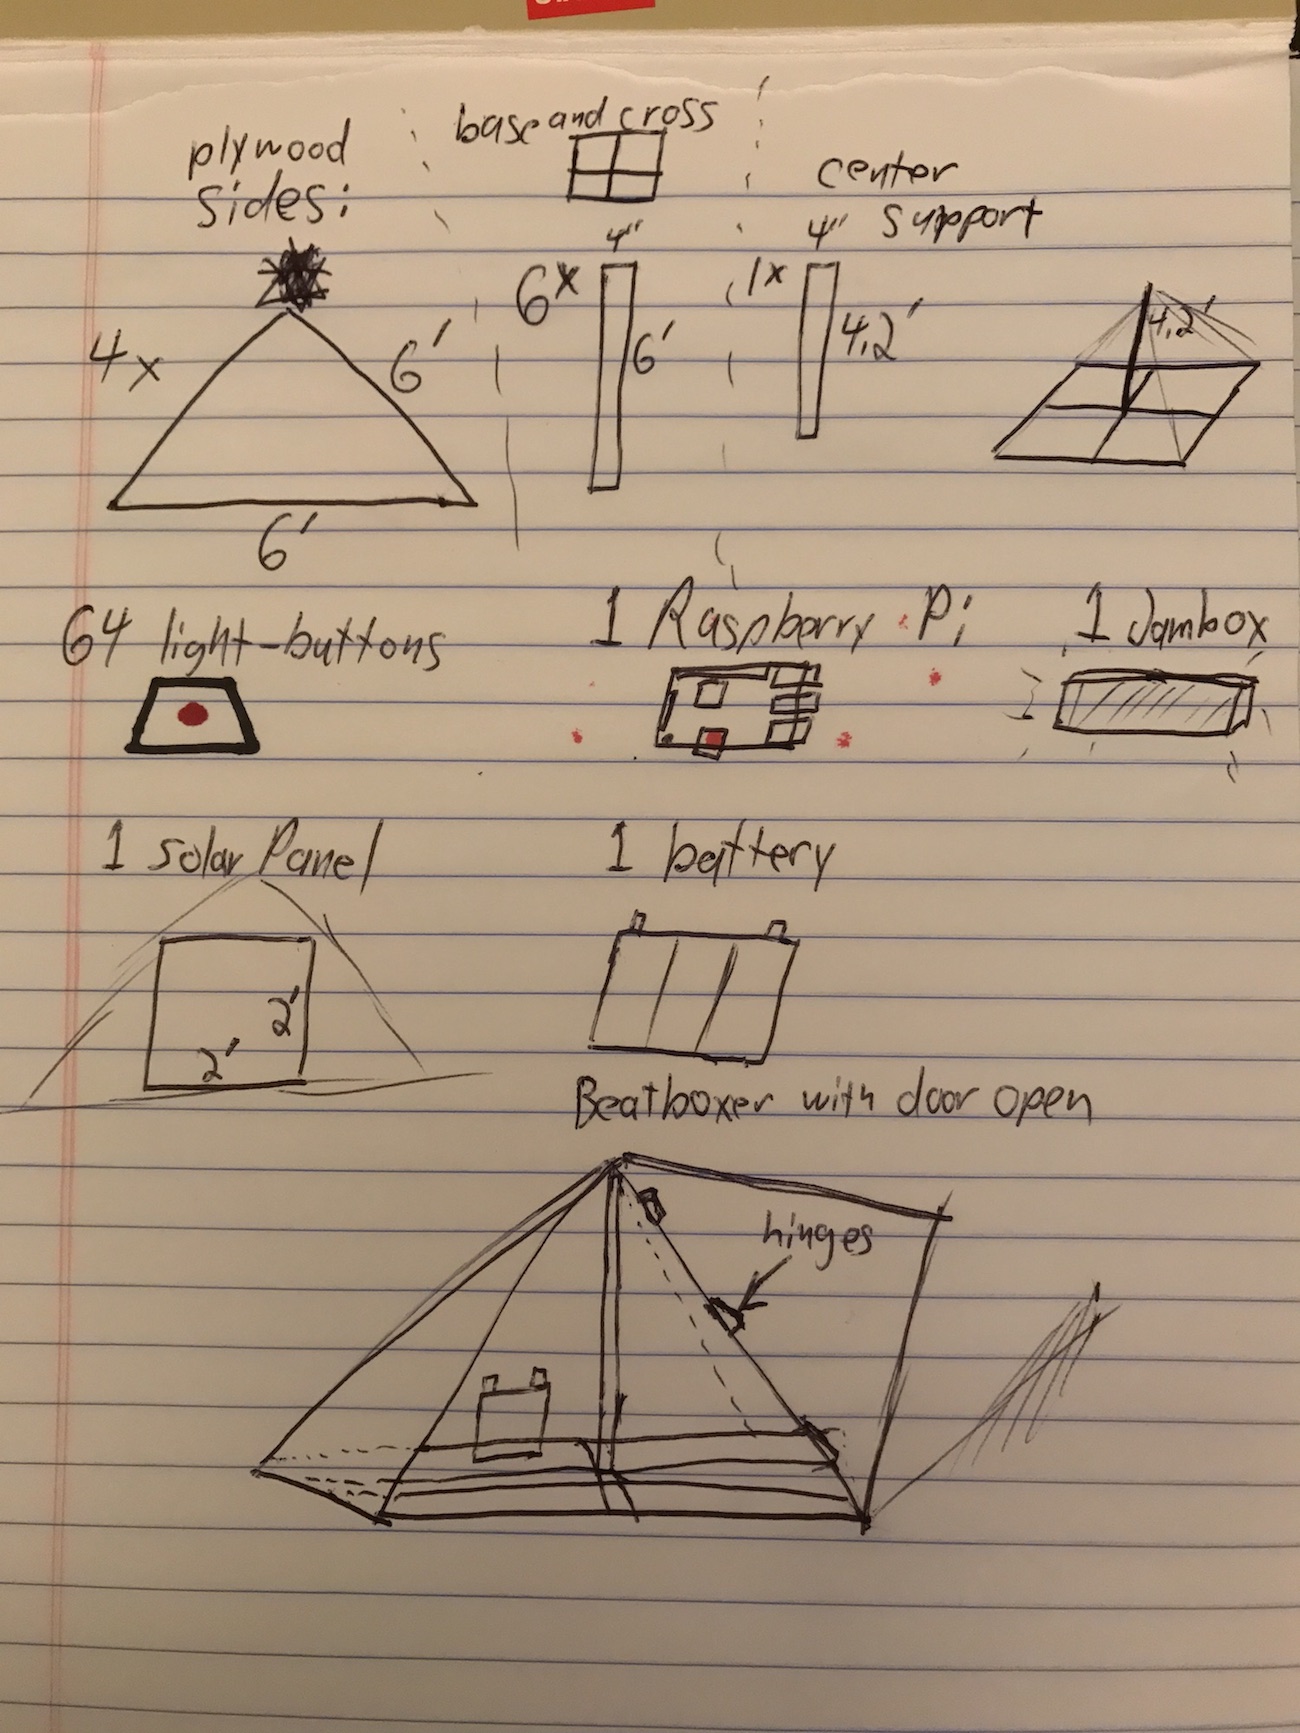 plywood
sides:
4x
6'
6'
base and cross
4"
6x
6'
center
support
4"
1x
4.2'
4.2'
64 light-buttons
1 Raspberry Pi
1 Jambox
1 Solar Panel
2'
2'
1 battery
Beatboxer with door open
hinges